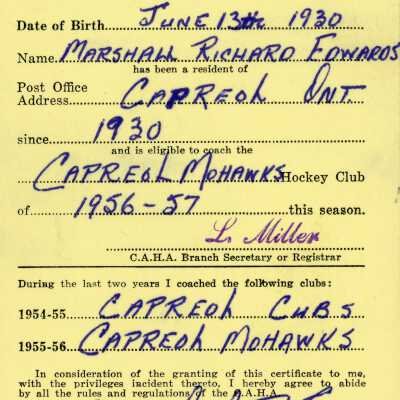 Date of Birth June 13th 1930
Name Marshall Richard Edwards
has been a resident of
Post Office
Address Capreol Ont
since 1930
and is eligible to coach the
Capreol Mohawks Hockey Club
of 1956-57 this season.
L. Miller
C.A.H.A. Branch Secretary or Registrar
During the last two years I coached the following clubs:
1954-55 Capreol Cubs
1955-56 Capreol Mohawks
In consideration of the granting of this certificate to me,
with the privileges incident thereto, I hereby agree to abide
by all the rules and regulations of the C.A.H.A.